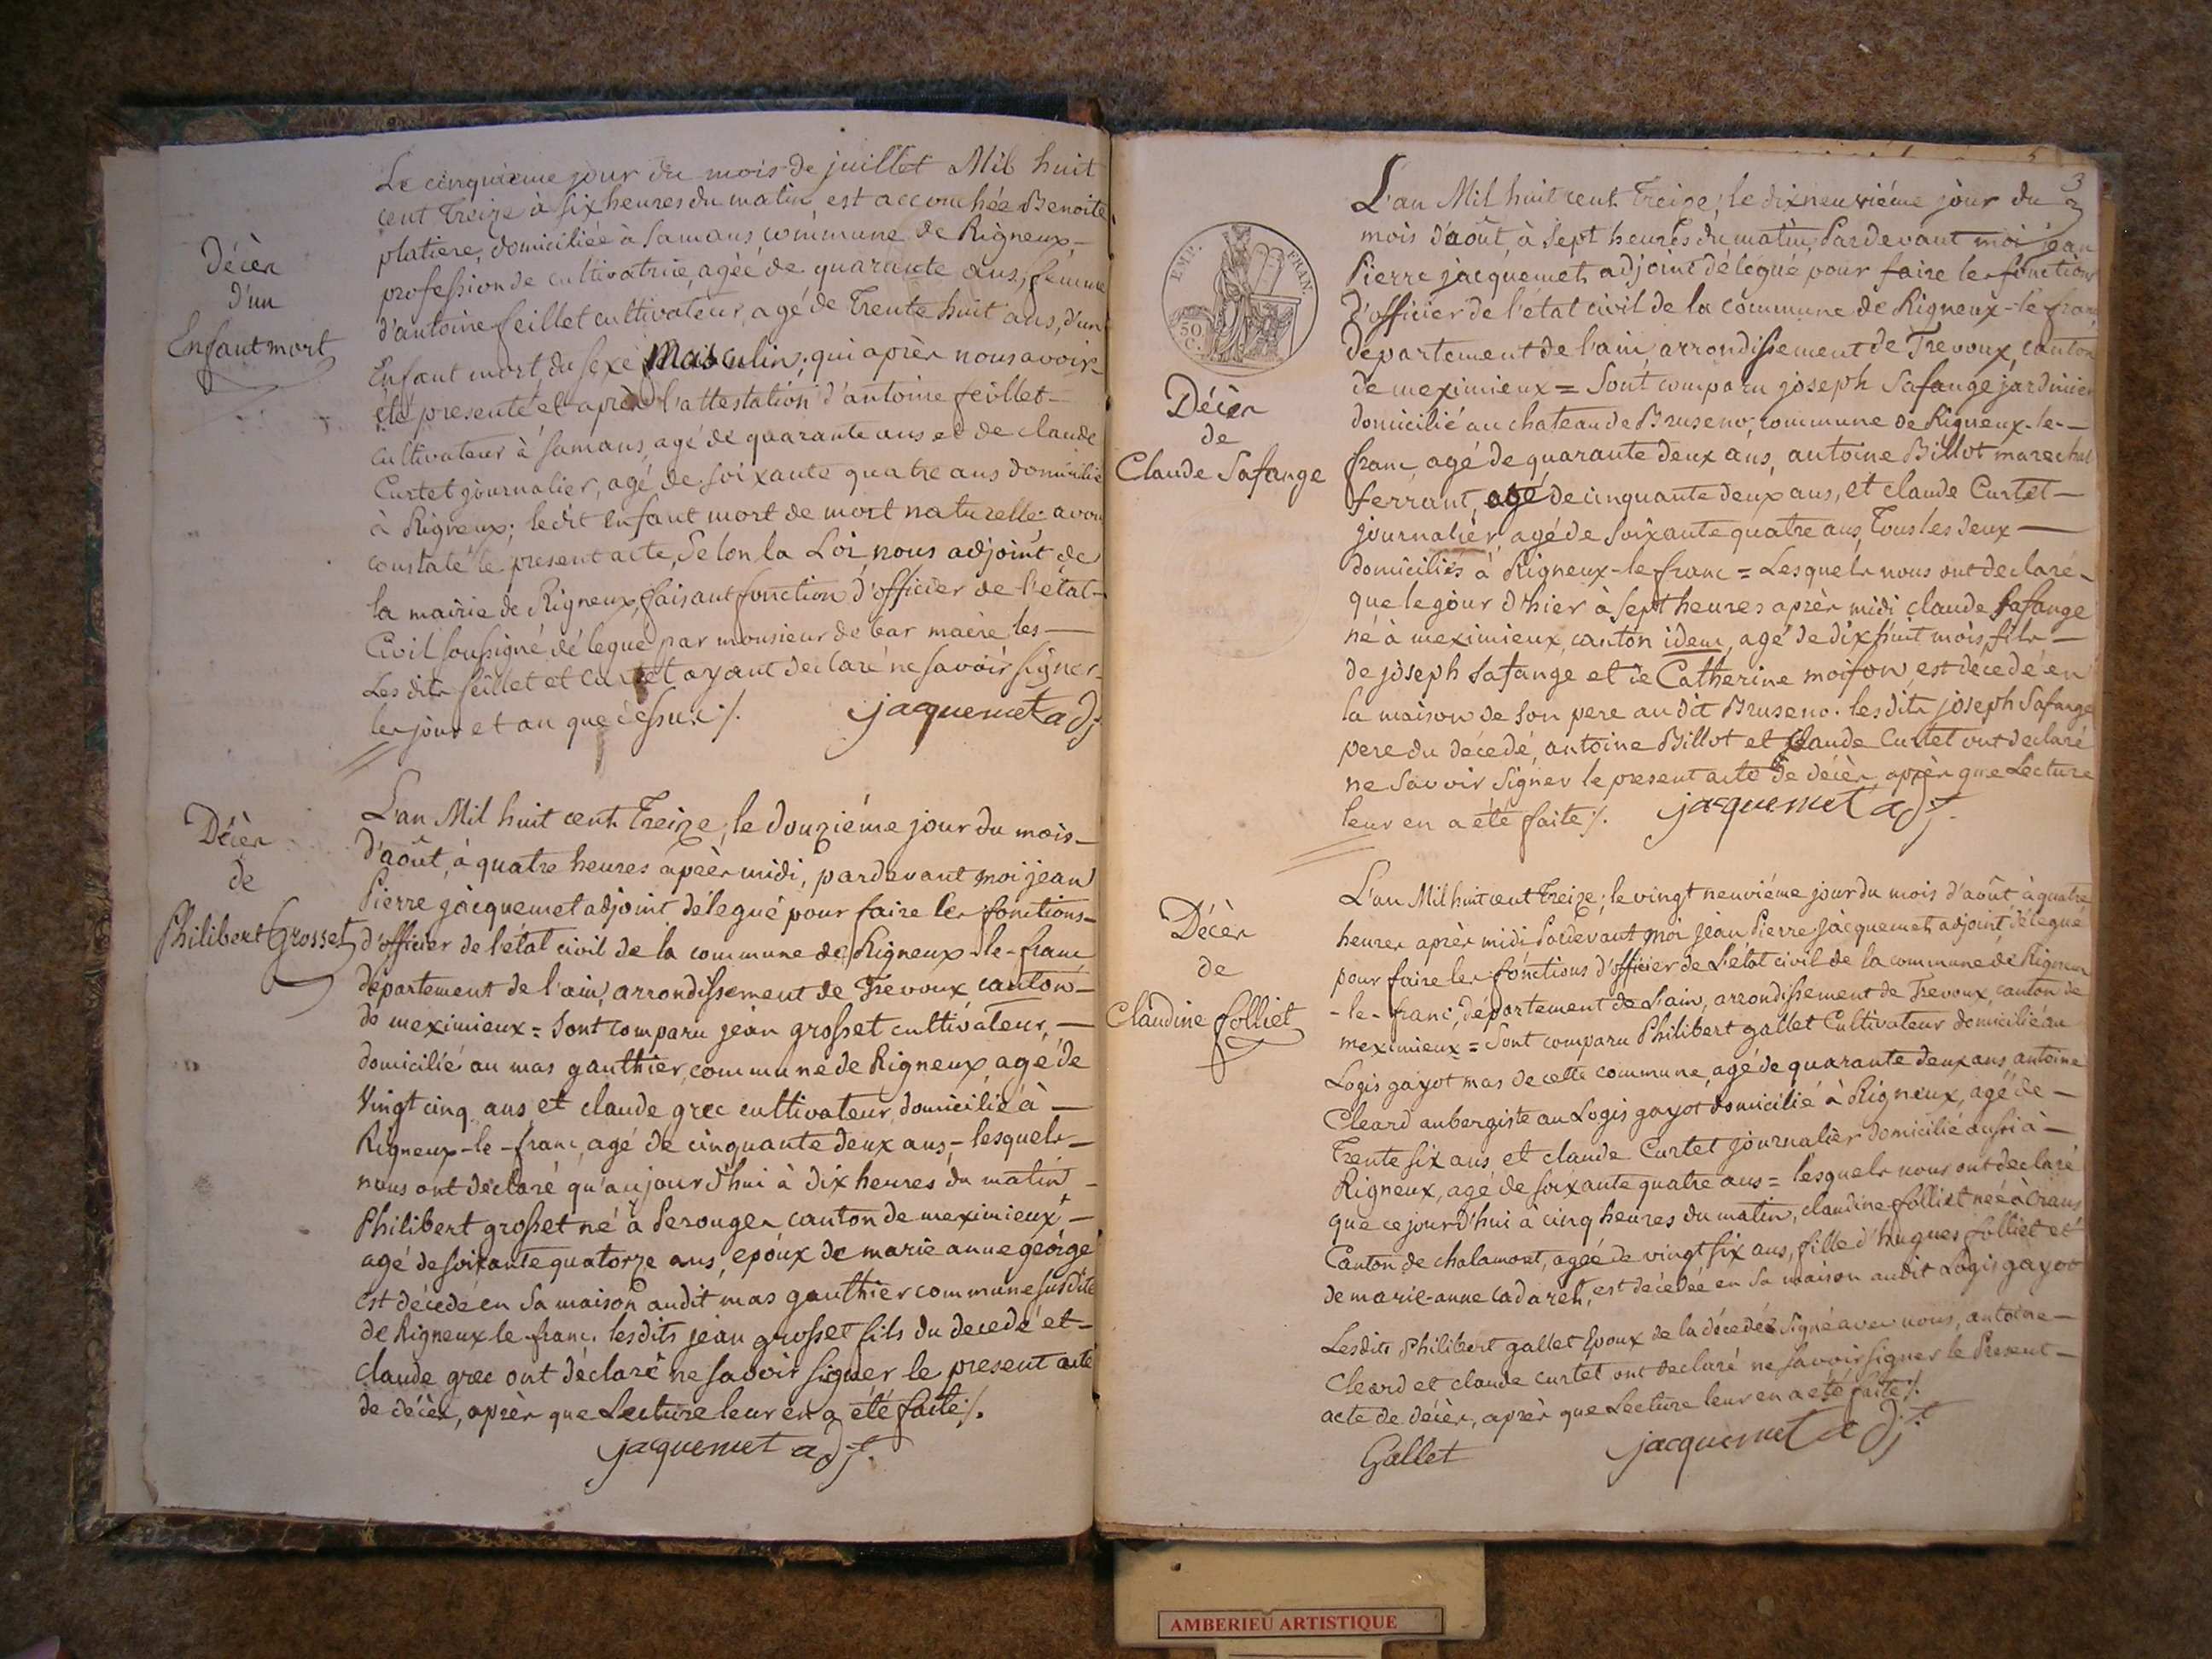 Décès
d'un
Enfant mort
Le cinquieme jour du mois de juillet Mil huit
cent treize à six heures du matin, est accouchée Benoite
platiere, domiciliée à Samans commune de Rigneux-
profession de cultivatrice, agée de quarante ans, femme
d'antoine feillet cultivateur, agé de Trente huit ans, d'un
Enfant mort du sexe Masculin; qui après nous avoir
été presenté et après l'attestation d'antoine feillet-
cultivateur à Samans, agé de quarante ans et de claude
Curtet journalier, agé de soixante quatre ans domicilié
à Rigneux; ledit enfant mort de mort naturelle avons
constaté le present acte, Selon la Loi, nous adjoint de
la mairie de Rigneux, faisant fonction d'officier de l'état-
Civil soussigné délegué par monsieur de bar maire les-
Les dits feillet et Curtet ayant declaré ne savoir signer-
les jour et an que dessus ./. jaquemet adj
Décès
de
Philibert Grosset
L'an Mil huit cent Treize, le douziéme jour du mois-
d'août, à quatre heures après midi, pardevant moi jean
Pierre jacquemet adjoint délegué pour faire les fonctions-
d'officier de l'état civil de la commune de Rigneux-le-franc
département de l'ain, arrondissement de Trevoux, canton-
de meximieux = Sont comparu jean grosset cultivateur,-
domicilié au mas gauthier, commune de Rigneux, agé de
Vingt cinq ans et claude grec cultivateur, domicilié à-
Rigneux-le-franc, agé de cinquante deux ans,- lesquels-
nous ont declaré qu'aujourd'hui à dix heures du matin-
Philibert grosset né à Perouges canton de meximieux-
agé de soixante quatorze ans, epoux de marie anne george
est décedé en Sa maison audit mas gauthier commune susdite
de Rigneux le franc. lesdits jean grosset fils du decedé et-
claude grec ont déclaré ne savoir signer le present acte
de décès, après que Lecture leur en a été faite ./.
jacquemet adjt.
3
EMP. FRAN.
50
C.
Décès
de
Claude Safange
L'an Mil huit cent Treize; le dixneuviéme jour du
mois d'août, à sept heures du matin, Pardevant moi jean
Pierre jacquemet adjoint délegué pour faire les fonctions
d'officier de l'etat civil de la commune de Rigneux-le-franc
département de l'ain, arrondissement de Trevoux, canton
de meximieux = Sont comparu joseph Safange jardinier
domicilié au chateau de Bruseno, commune de Rigneux-le-
franc agé de quarante deux ans, antoine Billot marechal
ferrant, agé de cinquante deux ans, et claude Curtet-
journalier, agé de soixante quatre ans, Tous les deux-
domiciliés à Rigneux-le franc = Lesquels nous ont declaré-
que le jour d'hier à sept heures après midi claude Safange
né à meximieux, canton idem, agé de dix huit mois, fils-
de joseph Safange et de Catherine moifon, est decedé en
la maison de son pere au dit Bruseno. les dits joseph Safange
pere du décedé, antoine Billot et Claude Curtet ont declaré
ne savoir signer le present acte de décès, après que Lecture
leur en a été faite ./. jacquemet adjt.
Décès
de
Claudine folliet
L'an Mil huit cent Treize; le vingt neuviéme jour du mois d'août à quatre
heures après midi Pardevant moi jean Pierre jacquemet adjoint délegué
pour faire les fonctions d'officier de L'état civil de la commune de Rigneux
-le-franc, département de L'ain, arrondissement de Trevoux, canton de
meximieux = Sont comparu Philibert gallet Cultivateur domicilié au
Logis gayot mas de cette commune, agé de quarante deux ans, antoine
Cleard aubergiste au Logis gayot domicilié à Rigneux, agé de-
Trente six ans, et claude Curtet journalier domicilié aussi à-
Rigneux, agé de soixante quatre ans = lesquels nous ont declaré
que ce jourd'hui à cinq heures du matin, claudine folliet née à Crans
Canton de chalamont, agée de vingt six ans, fille d'hugues folliet et
de marie-anne Cadaret, est décedée en Sa maison audit Logis gayot
Lesdits Philibert gallet Epoux de la décedée signé avec nous, antoine-
Cleard et claude curtet ont declaré ne savoir signer le Present-
acte de décès, après que Lecture leur en a été faite ./.
Gallet jacquemet adjt
AMBERIEU ARTISTIQUE